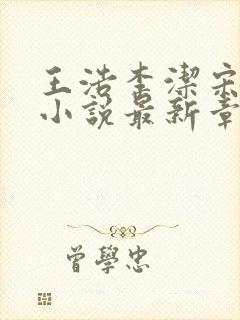 王浩李潔宋
小說最新章
曾學忠